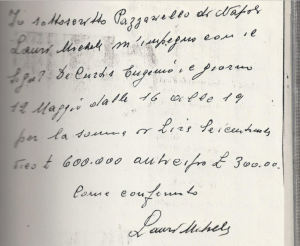 Io sottoscritto Pazzanello di Napoli
Lauri Michele m'impegno con il
Sigr De Curtis Eugenio il giorno
12 Maggio dalle 16 alle 19
per la somma di Lire Seicentomila
£ 600.000 anticipo £ 300.00.
Come confermato
Lauri Michele